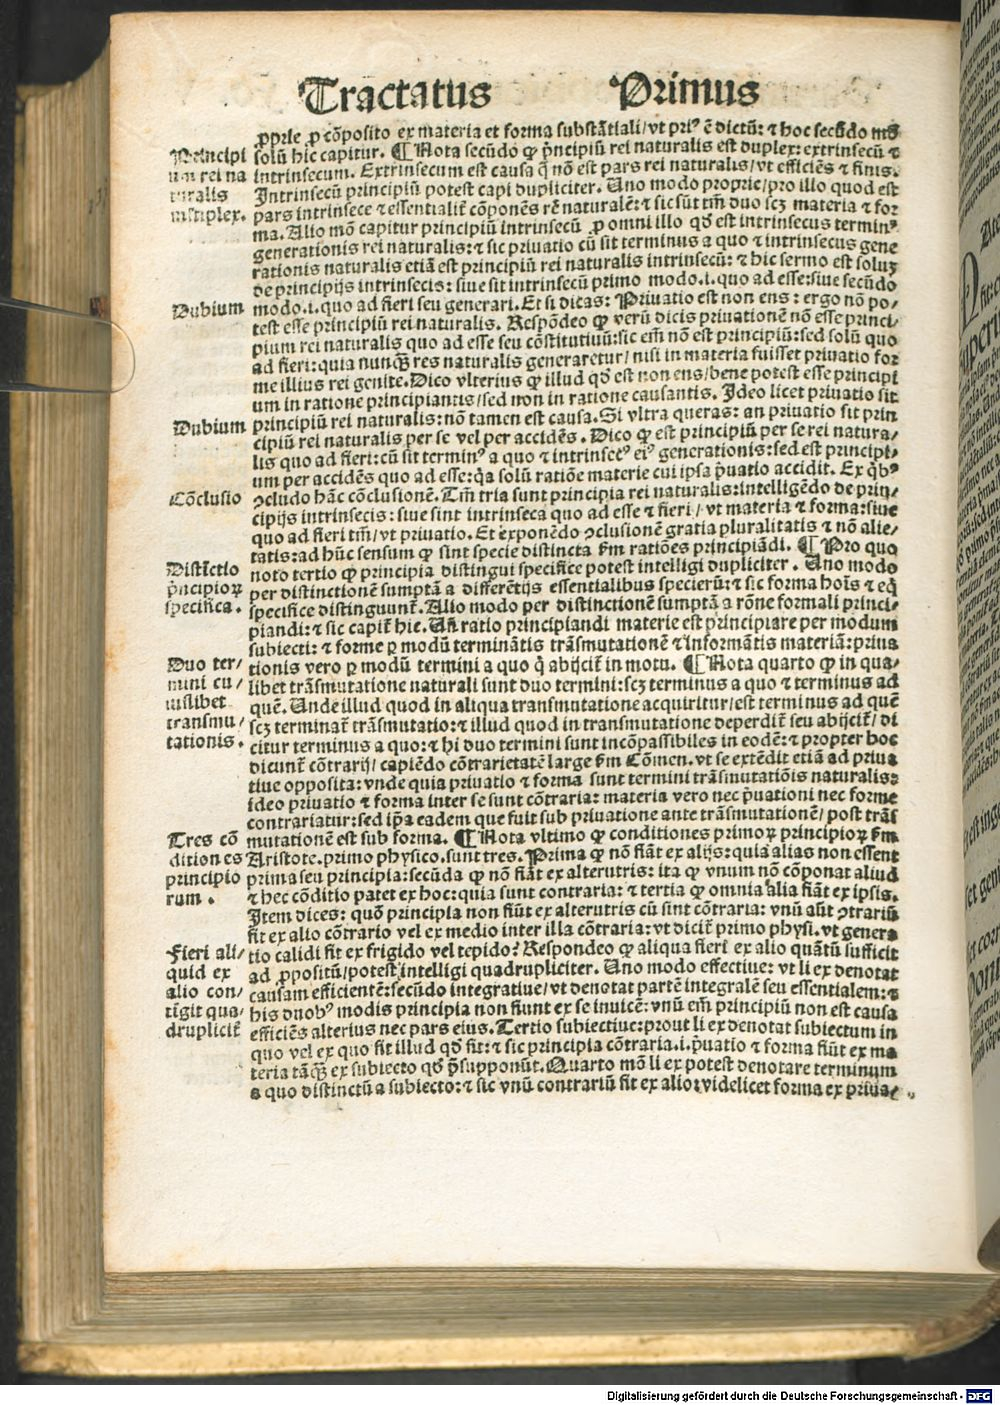 Tractatus Primus
ꝓprie ꝓ cōposito ex materia et forma substātiali/vt pri⁹ ē dictū: ⁊ hoc secūdo mō
solū hic capitur. ¶ Nota secūdo ꝙ p̄ncipiū rei naturalis est duplex: extrinsecū ⁊
intrinsecum. Extrinsecum est causa q̄ nō est pars rei naturalis/vt efficiēs ⁊ finis.
Intrinsecū principiū potest capi dupliciter. Uno modo proprie/pro illo quod est
pars intrinsece ⁊ essentialiť cōponēs rē naturalē: ⁊ sic sūt tm̄ duo scꝫ materia ⁊ for
ma. Alio mō capitur principiū intrinsecū ꝓ omni illo qd̄ est intrinsecus termin⁹
generationis rei naturalis: ⁊ sic priuatio cū sit terminus a quo ⁊ intrinsecus gene
rationis naturalis etiā est principiū rei naturalis intrinsecū: ⁊ hic sermo est soluꝫ
de principijs intrinsecis: siue sit intrinsecū primo modo.i.quo ad esse: siue secūdo
modo.i.quo ad fieri seu generari. Et si dicas: Priuatio est non ens: ergo nō po/
test esse principiū rei naturalis. Respōdeo ꝙ verū dicis priuationē nō esse princi/
pium rei naturalis quo ad esse seu cōstitutiuū: sic em̄ nō est principiū: sed solū quo
ad fieri: quia nunq̄ꝫ res naturalis generaretur/ nisi in materia fuisset priuatio for
me illius rei genite. Dico vlterius ꝙ illud qd̄ est non ens/bene potest esse principi
um in ratione principiantis/sed non in ratione causantis. Ideo licet priuatio sit
principiū rei naturalis: nō tamen est causa. Si vltra queras: an priuatio sit prin
cipiū rei naturalis per se vel per accidēs. Dico ꝙ est principiū per se rei natura/
lis quo ad fieri: cū sit termin⁹ a quo ⁊ intrinsec⁹ ei⁹ generationis: sed est principi/
um per accidēs quo ad esse: q̄a solū ratiōe materie cui ipsa p̄uatio accidit. Ex q̄b⁹
ↄcludo hāc cōclusionē. Tm̄ tria sunt principia rei naturalis: intelligēdo de prin/
cipijs intrinsecis: siue sint intrinseca quo ad esse ⁊ fieri/ vt materia ⁊ forma: siue
quo ad fieri tm̄/ vt priuatio. Et exponēdo ↄclusionē gratia pluralitatis ⁊ nō alie/
tatis: ad hūc sensum ꝙ sint specie distincta s̄m ratiōes principiādi. ¶ Pro quo
noto tertio ꝙ principia distingui specifice potest intelligi dupliciter. Uno modo
per distinctionē sumptā a differētijs essentialibus specierū: ⁊ sic forma hoīs ⁊ eq̄
specifice distinguunť. Alio modo per distinctionē sumptā a rōne formali princi/
piandi: ⁊ sic capiť hic. Uñ ratio principiandi materie est principiare per modum
subiecti: ⁊ forme ꝑ modū terminātis trāsmutationē ⁊ informātis materiā: priua
tionis vero ꝑ modū termini a quo q̄ abijciť in motu. ¶ Nota quarto ꝙ in qua/
libet trāsmutatione naturali sunt duo termini: scꝫ terminus a quo ⁊ terminus ad
quē. Unde illud quod in aliqua transmutatione acquiritur/est terminus ad quē
scꝫ terminať trāsmutatio: ⁊ illud quod in transmutatione deperdiť seu abijciť/ di
citur terminus a quo: ⁊ hi duo termini sunt incōpassibiles in eodē: ⁊ propter hoc
dicunť cōtrarij/ capiēdo cōtrarietatē large s̄m Cōmen. vt se extēdit etiā ad priua
tiue opposita: vnde quia priuatio ⁊ forma sunt termini trāsmutatiōis naturalis:
ideo priuatio ⁊ forma inter se sunt cōtraria: materia vero nec p̄uationi nec forme
contrariatur: sed ip̄a eadem que fuit sub priuatione ante trāsmutationē/ post trās
mutationē est sub forma. ¶ Nota vltimo ꝙ conditiones primoꝝ principioꝝ s̄m
Aristote. primo physico. sunt tres. Prima ꝙ nō fiāt ex alijs: quia alias non essent
prima seu principia: secūda ꝙ nō fiāt ex alterutris: ita ꝙ vnum nō cōponat aliud
⁊ hec cōditio patet ex hoc: quia sunt contraria: ⁊ tertia ꝙ omnia alia fiāt ex ipsis.
Item dices: quō principia non fiūt ex alterutris cū sint cōtraria: vnū aūt ↄtrariū
fit ex alio cōtrario vel ex medio inter illa cōtraria: vt diciť primo physi. vt genera
tio calidi fit ex frigido vel tepido? Respondeo ꝙ aliqua fieri ex alio quātū sufficit
ad ꝓpositū/potest intelligi quadrupliciter. Uno modo effectiue: vt li ex denotat
causam efficientē: secūdo integratiue/ vt denotat partē integralē seu essentialem: ⁊
his duob⁹ modis principia non fiunt ex se inuicē: vnū em̄ principiū non est causa
efficiēs alterius nec pars eius. Tertio subiectiue: prout li ex denotat subiectum in
quo vel ex quo fit illud qd̄ fit: ⁊ sic principia cōtraria.i. p̄uatio ⁊ forma fiūt ex ma
teria tāq̄ꝫ ex subiecto qd̄ p̄supponūt. Quarto mō li ex potest denotare terminum
a quo distinctū a subiecto: ⁊ sic vnū contrariū fit ex alio: videlicet forma ex priua/
Principi
um rei na
turalis
multiplex.
Dubium
Dubium
Cōclusio
Distīctio
p̄ncipioꝝ
specifica.
Duo ter/
mini cu/
iuslibet
transmu/
tationis.
Tres cō
ditiones
principio
rum.
Fieri ali/
quid ex
alio con/
tīgit qua/
drupliciť
Digitalisierung gefördert durch die Deutsche Forschungsgemeinschaft - DFG